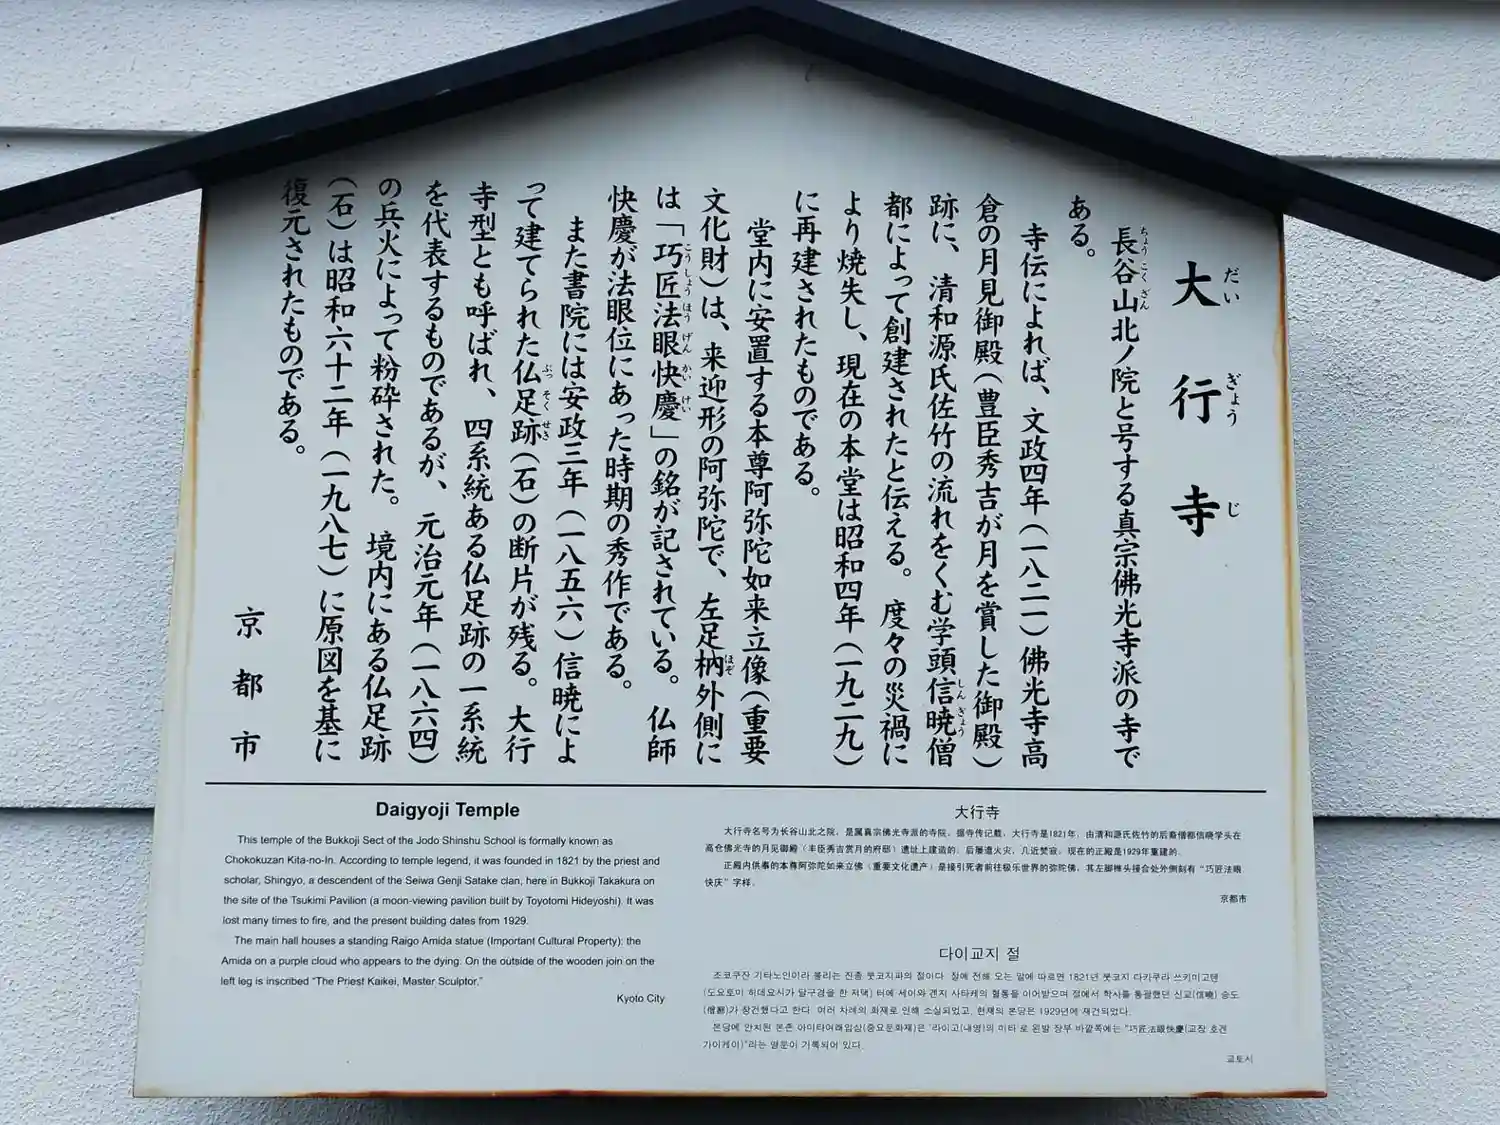 大行寺
だいぎょうじ
長谷山北ノ院と号する真宗佛光寺派の寺で
ちょうこくざん
ある。
寺伝によれば、文政四年(一八二一)佛光寺高
倉の月見御殿(豊臣秀吉が月を賞した御殿)
跡に、清和源氏佐竹の流れをくむ学頭信暁僧
しんぎょう
都によって創建されたと伝える。度々の災禍に
より焼失し、現在の本堂は昭和四年(一九二九)
に再建されたものである。
堂内に安置する本尊阿弥陀如来立像(重要
文化財)は、来迎形の阿弥陀で、左足枘外側に
ほぞ
は「巧匠法眼快慶」の銘が記されている。仏師
こうしょうほうげんかいけい
快慶が法眼位にあった時期の秀作である。
また書院には安政三年(一八五六)信暁によ
って建てられた仏足跡(石)の断片が残る。大行
ぶっそくせき
寺型とも呼ばれ、四系統ある仏足跡の一系統
を代表するものであるが、元治元年(一八六四)
の兵火によって粉砕された。境内にある仏足跡
(石)は昭和六十二年(一九八七)に原図を基に
復元されたものである。
京都市
Daigyoji Temple
This temple of the Bukkoji Sect of the Jodo Shinshu School is formally known as
Chokokuzan Kita-no-In. According to temple legend, it was founded in 1821 by the priest and
scholar, Shingyo, a descendent of the Seiwa Genji Satake clan, here in Bukkoji Takakura on
the site of the Tsukimi Pavilion (a moon-viewing pavilion built by Toyotomi Hideyoshi). It was
lost many times to fire, and the present building dates from 1929.
The main hall houses a standing Raigo Amida statue (Important Cultural Property): the
Amida on a purple cloud who appears to the dying. On the outside of the wooden join on the
left leg is inscribed "The Priest Kaikei, Master Sculptor."
Kyoto City
大行寺
大行寺名号为长谷山北之院，是属真宗佛光寺派的寺院，据寺传记载，大行寺是1821年，由清和源氏佐竹的后裔僧都信晓学头在
高仓佛光寺的月见御殿（丰臣秀吉赏月的府邸）遗址上建造的，后屡遭火灾，几近焚寂，现在的正殿是1929年重建的。
正殿内供奉的本尊阿弥陀如来立佛（重要文化遗产）是接引死者前往极乐世界的弥陀佛，其左脚榫头接合处外侧刻有“巧匠法眼
快庆”字样。
京都市
다이교지 절
조코쿠잔 기타노인이라 불리는 진종 붓코지파의 절이다. 절에 전해 오는 말에 따르면 1821년 붓코지 다카쿠라 쓰키미고텐
(도요토미 히데요시가 달구경을 한 저택) 터에 세이와 겐지 사타케의 혈통을 이어받으며 절에서 학사를 통괄했던 신교(信曉) 승도
(僧都)가 창건했다고 한다. 여러 차례의 화재로 인해 소실되었고, 현재의 본당은 1929년에 재건되었다.
본당에 안치된 본존 아미타여래입상(중요문화재)은 '라이고(내영)의 미타'로 왼발 장부 바깥쪽에는 "巧匠法眼快慶(교장 호겐
가이케이)"라는 명문이 기록되어 있다.
교토시